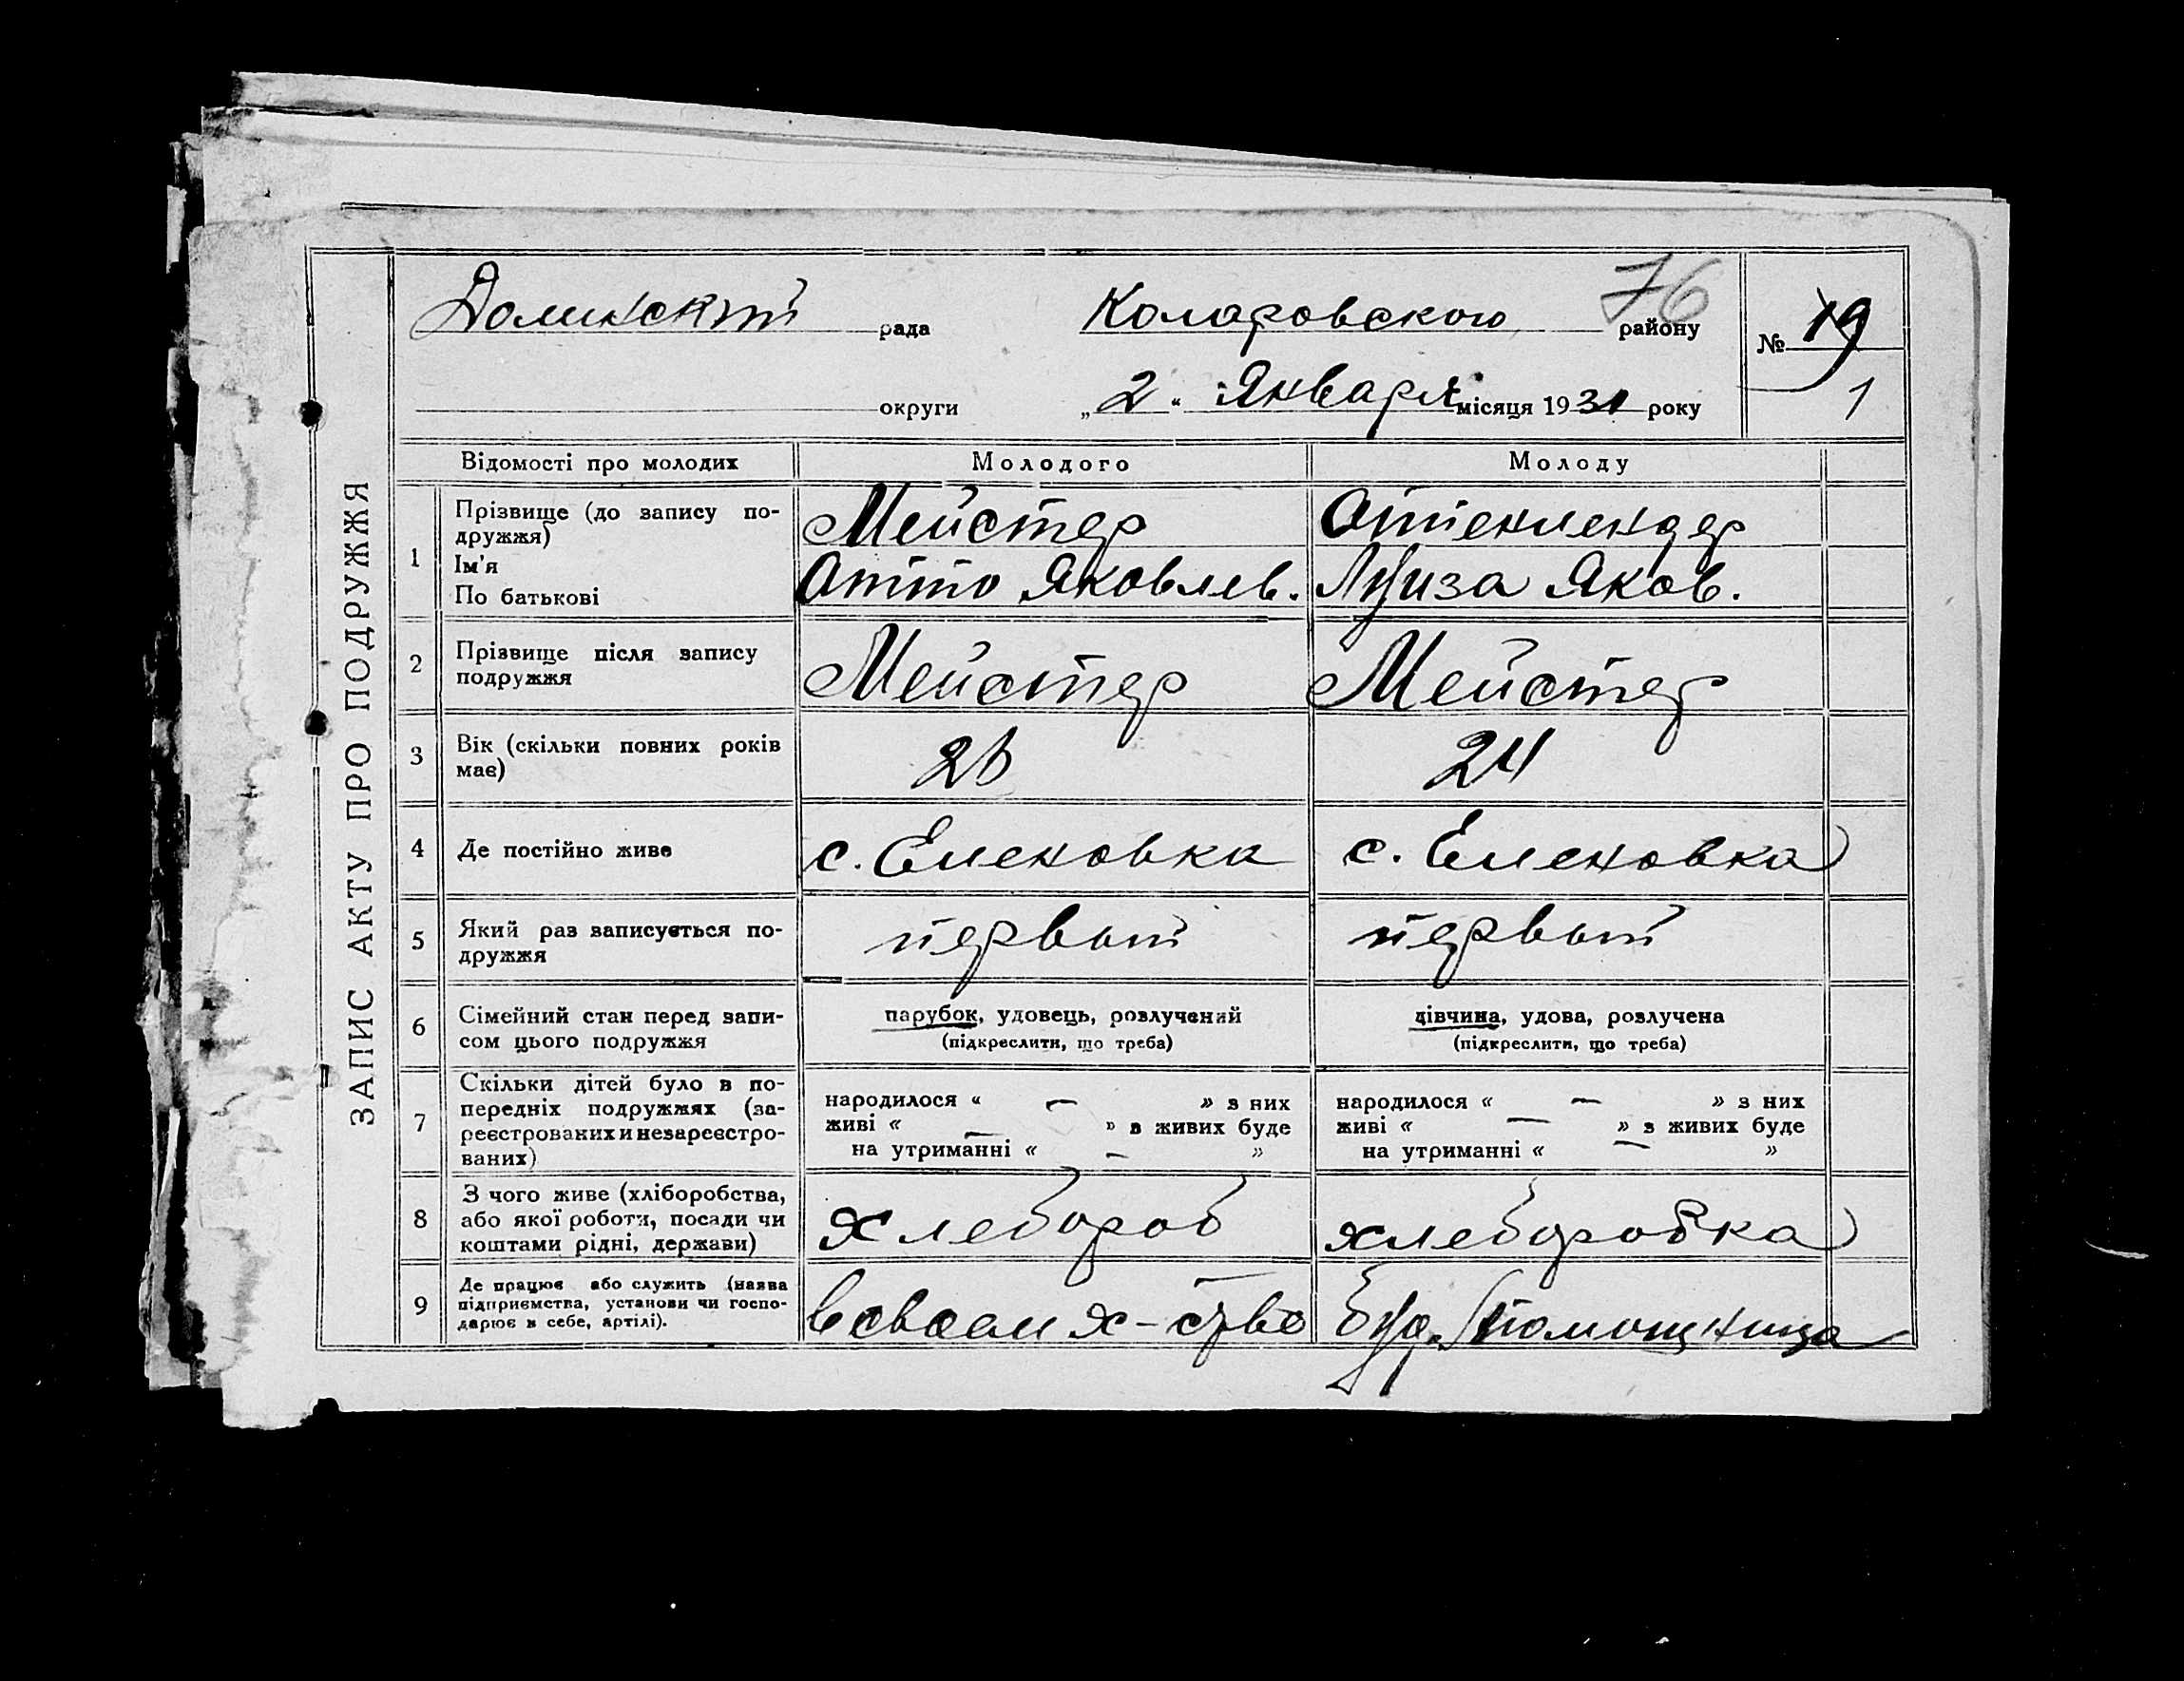 ЗАПИС АКТУ ПРО ПОДРУЖЖЯ
76
Долинский рада Коларовского району № 19
округи „2“ Января місяця 1931 року 1
Відомості про молодих Молодого Молоду
1 Прізвище (до запису по-
дружжя) Мейстер
Ім'я
По батькові Отто Яковлев. Луиза Яков.
2 Прізвище після запису
подружжя Мейстер Мейстер
3 Вік (скільки повних років
має) 26 24
4 Де постійно живе с. Еленовка с. Еленовка
5 Який раз записується по-
дружжя первый первый
6 Сімейний стан перед запи-
сом цього подружжя парубок, удовець, розлучений дівчина, удова, розлучена
(підкреслити, що треба) (підкреслити, що треба)
7 Скільки дітей було в по-
передніх подружжях (за-
реєстрованих и незареєстро-
ваних) народилося « — » з них народилося « — » з них
живі « — » з живих буде живі « — » з живих буде
на утриманні « — » на утриманні « — »
8 З чого живе (хліборобства,
або якої роботи, посади чи
коштами рідні, держави) хлебороб хлеборобка
9 Де працює або служить (назва
підприємства, установи чи госпо-
дарює в себе, артілі). в своем х-стве помощница